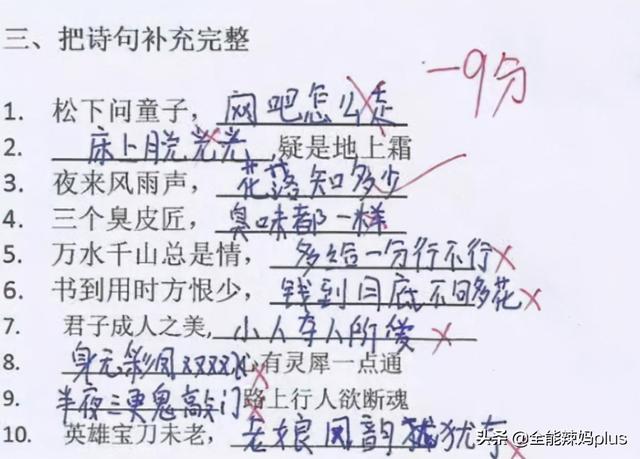 三、把诗句补充完整
-9分
1. 松下问童子，网吧怎么走
2. 床上脱光光,疑是地上霜
3. 夜来风雨声，花落知多少
4. 三个臭皮匠，臭味都一样
5. 万水千山总是情，多给一分行不行
6. 书到用时方恨少，钱到月底不够花
7. 君子成人之美,小人夺人所爱
8. 身无彩凤双双飞心有灵犀一点通
9. 半夜三更鬼敲门路上行人欲断魂
10. 英雄宝刀未老，老娘风韵犹存
头条 @全能辣妈plus